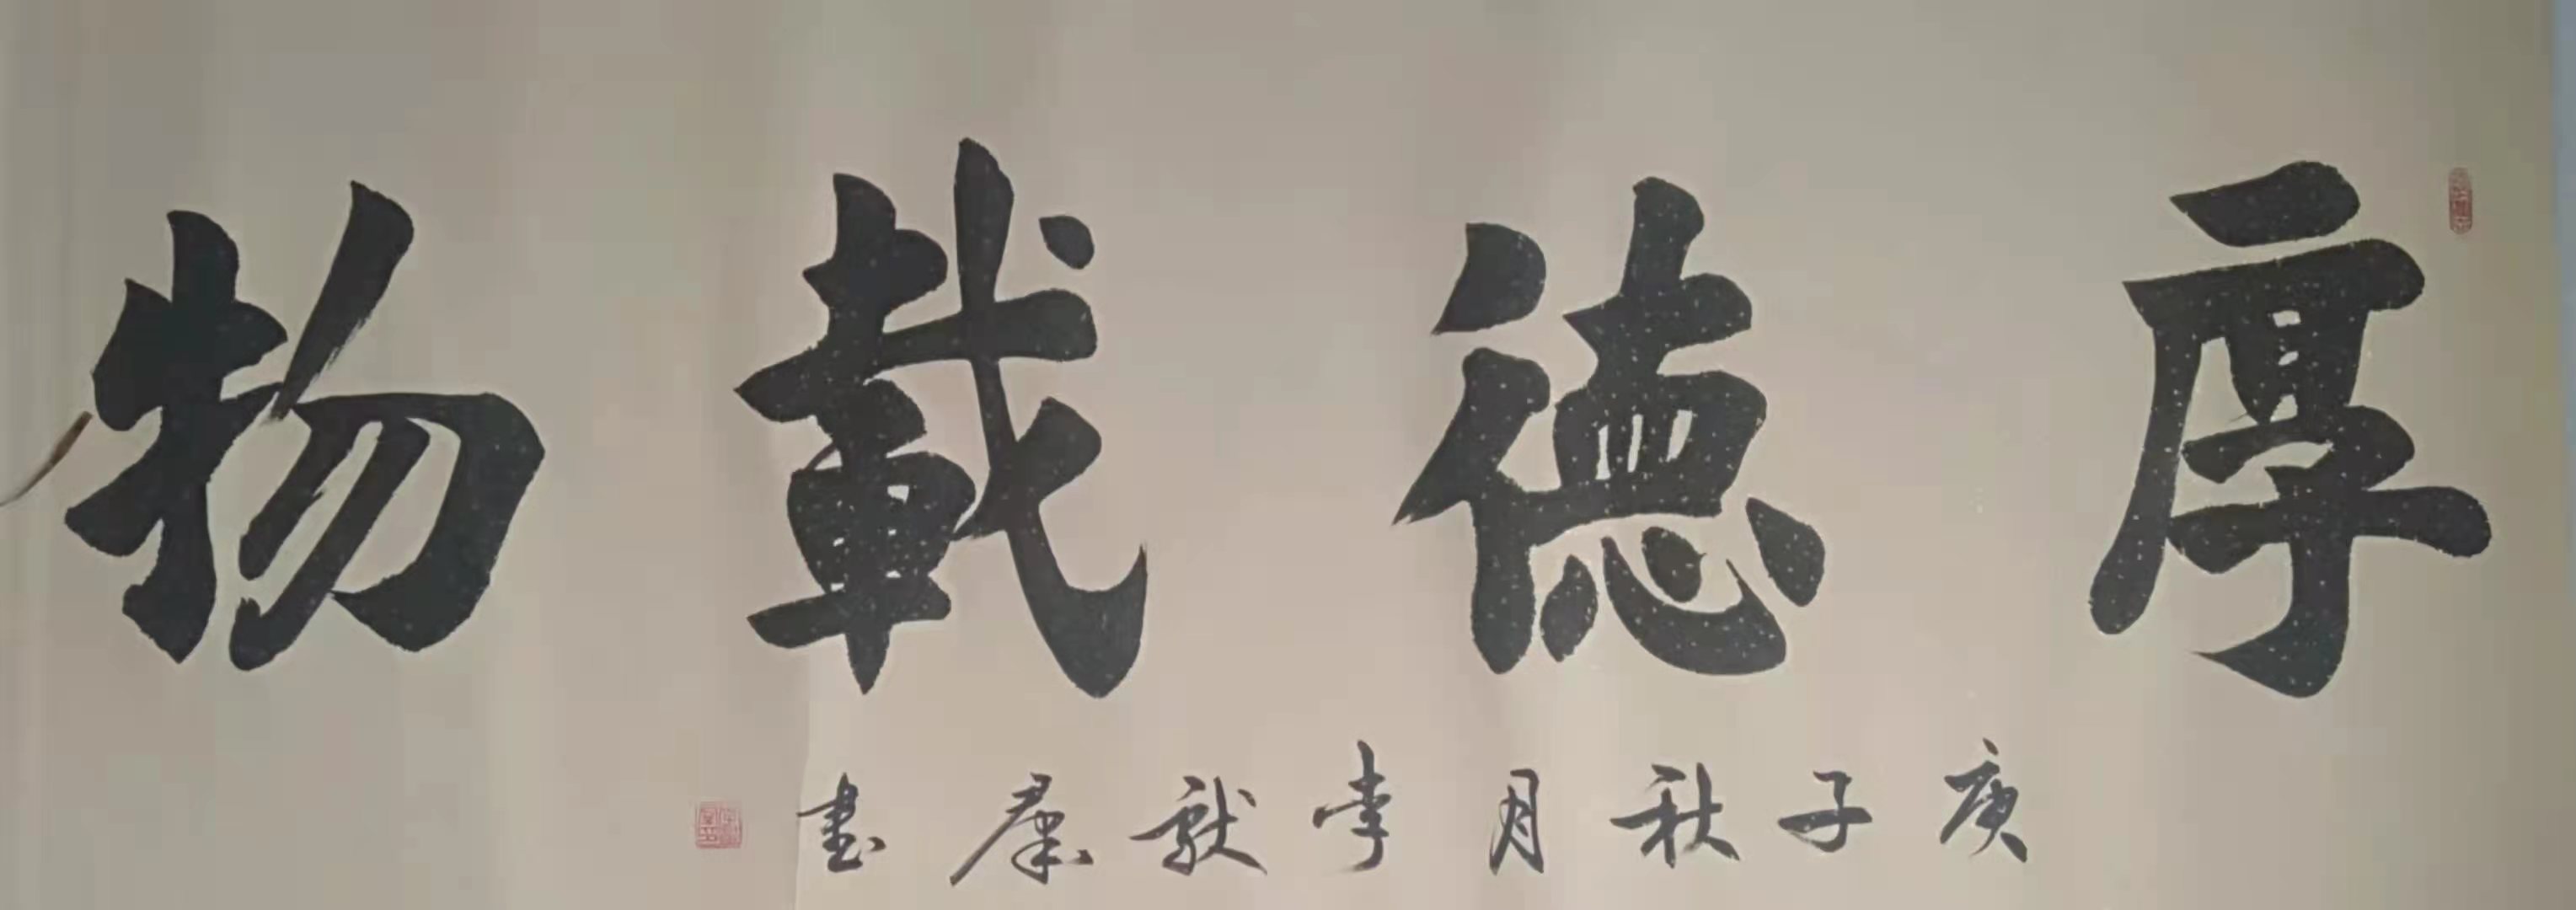 厚德載物
庚子秋月李獻群書